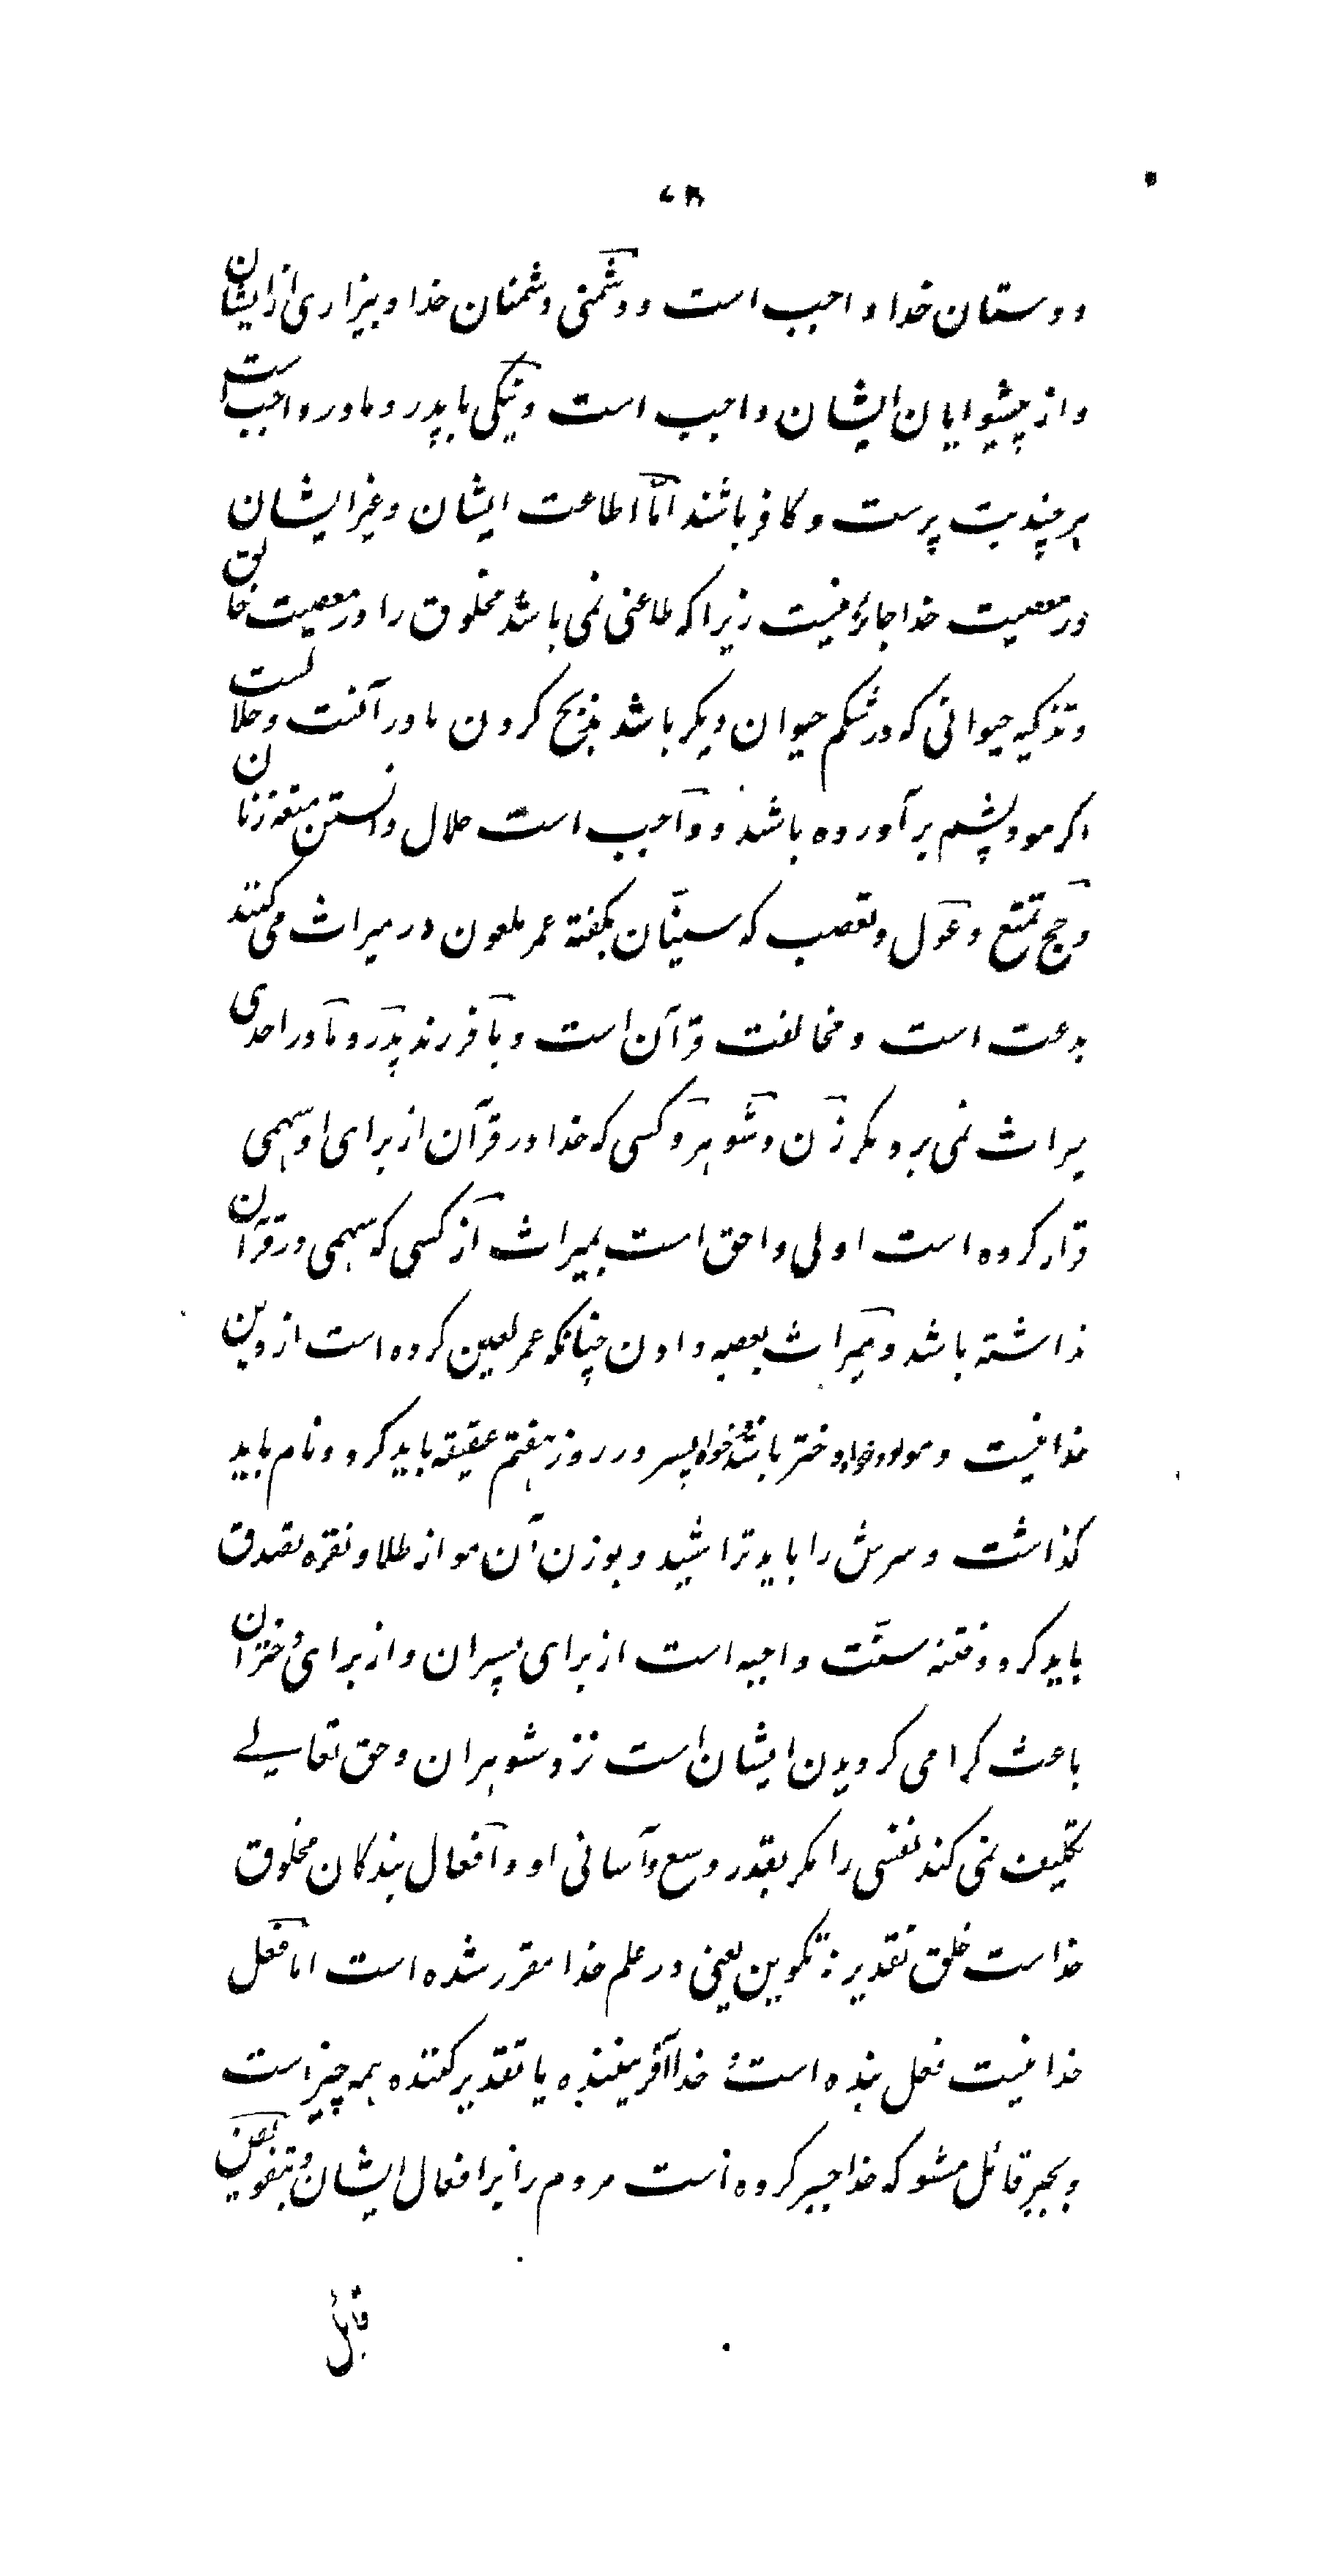 دوستان خدا واجب است و دشمنی دشمنان خدا و بیزاری از ایشان
و از پیشوایان ایشان واجب است و نیکی با پدر و مادر واجب است
هر چند بت پرست و کافر باشند امّا اطاعت ایشان و غیر ایشان
در معصیت خدا جائز نیست زیرا که طاعتی نمی باشد مخلوق را در معصیت خالق
و تذکیه حیوانی که در شکم حیوان دیکر باشد بذبح کردن مادر آنست و حلالست
اکر مو و پشم برآورده باشد و واجب است حلال دانستن متعه زنان
و حج تمتع و عول و تعصب که سنیّان بکفته عمر ملعون در میراث می کنند
بدعت است و مخالفت قرآن است و با فرزند پدر و مادر احدی
میراث نمی برد مکر زن و شوهر و کسی که خدا در قرآن از برای او سهمی
قرار کرده است اولی و احق است بمیراث از کسی که سهمی در قرآن
نداشته باشد و میراث بعصبه دادن چنانکه عمر تعیین کرده است از دین
خدا نیست و مولود خواه دختر باشد و خواه پسر در روز هفتم عقیقه باید کرد و نام باید
کذاشت و سرش را باید تراشید و بوزن آن مو از طلا و نقره تصدق
باید کرد و ختنه سنّت واجبه است از برای پسران و از برای دختران
باعث کرامی کردیدن ایشان است نزد شوهران و حق تعالے
تکلیف نمی کند نفسی را مکر بقدر وسع و آسانی او و افعال بندکان مخلوق
خداست خلق تقدیر نه تکوین یعنی در علم خدا مقرر شده است اما فعل
خدا نیست فعل بنده است و خدا آفریننده یا تقدیر کننده همه چیز است
و بجبر قائل مشو که خدا جبر کرده است مردم را بر افعال ایشان و بتفویض
قائل